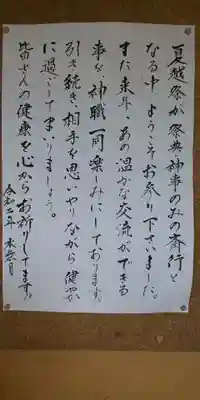 夏越祭が祭典神事のみの斎行と
なる中ようこそお参り下さいました。
また来年、あの温かな交流ができる
事を、神職一同楽しみにしております。
引き続き、相手を思いやりながら健やか
に過ごしてまいりましょう。
皆さんの健康を心からお祈りしてます。
令和二年 水無月